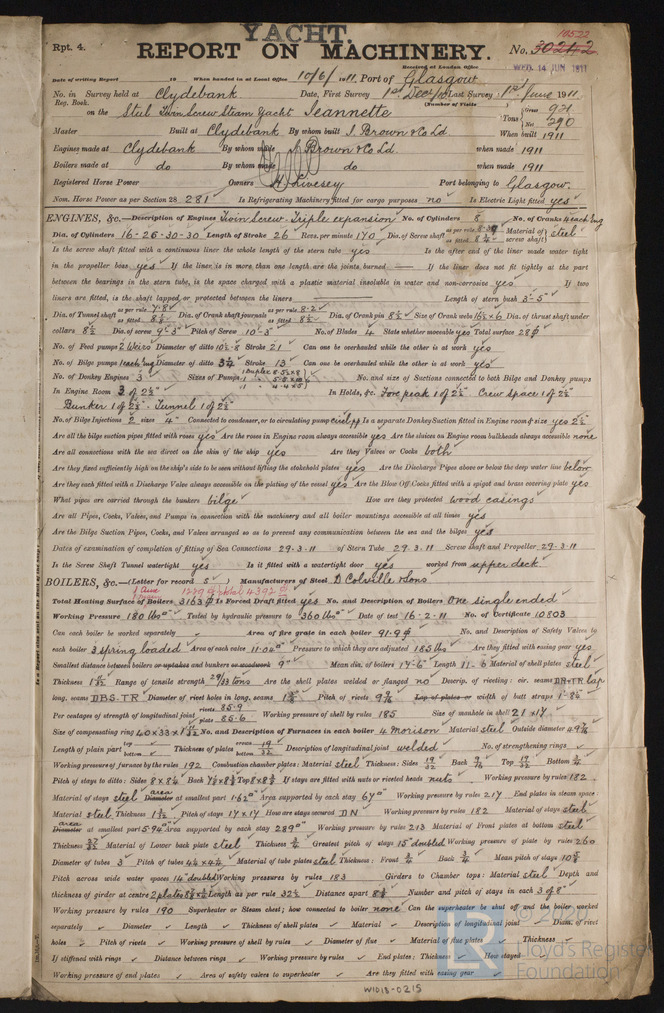 YACHT.
Rpt. 4.
REPORT ON MACHINERY.
No. 30242
16522
Received at London Office
WED. 14 JUN 1911
Date of writing Report 19 When handed in at Local Office 10/6/1911. Port of Glasgow
No. in Survey held at Clydebank Date, First Survey 1st Dec/10 Last Survey 1st June 1911
Reg. Book. (Number of Visits
on the Steel Twin Screw Steam Yacht Jeannette Tons Gross 921 Net 290
Master Built at Clydebank By whom built J. Brown & Co Ld. When built 1911
Engines made at Clydebank By whom made J. Brown & Co Ld. when made 1911
Boilers made at do By whom made do when made 1911
Registered Horse Power Owners H. Livesey Port belonging to Glasgow.
Nom. Horse Power as per Section 28 281 Is Refrigerating Machinery fitted for cargo purposes no Is Electric Light fitted yes
ENGINES, &c.—Description of Engines Twin Screw. Triple expansion No. of Cylinders 8 No. of Cranks 4 each Eng
Dia. of Cylinders 16-26-30-30 Length of Stroke 26 Revs. per minute 170 Dia. of Screw shaft as per rule as fitted 8 3/4 Material of screw shaft steel
Is the screw shaft fitted with a continuous liner the whole length of the stern tube yes Is the after end of the liner made water tight
in the propeller boss yes If the liner is in more than one length are the joints burned If the liner does not fit tightly at the part
between the bearings in the stern tube, is the space charged with a plastic material insoluble in water and non-corrosive yes If two
liners are fitted, is the shaft lapped or protected between the liners Length of stern bush 3'-5"
Dia. of Tunnel shaft as per rule 7.8 as fitted Dia. of Crank shaft journals as per rule 8.2 as fitted 8 1/2 Dia. of Crank pin 8 1/2 Size of Crank webs Dia. of thrust shaft under
collars 8 1/2 Dia. of screw 9'-3" Pitch of Screw 10'-3" No. of Blades 4 State whether moveable yes Total surface 28
No. of Feed pumps 2 Weirs Diameter of ditto Stroke 21 Can one be overhauled while the other is at work yes
No. of Bilge pumps 1 each Eng Diameter of ditto 3 3/4 Stroke 13 Can one be overhauled while the other is at work yes
No. of Donkey Engines 3 Sizes of Pumps No. and size of Suctions connected to both Bilge and Donkey pumps
In Engine Room 3 of 2 1/2" In Holds, &c. Fore peak 1 of 2 1/2 Crew space 1 of 2 1/2"
Bunker 1 of 2 1/2" Tunnel 1 of 2 1/2"
No. of Bilge Injections 2 sizes 4" Connected to condenser, or to circulating pump Is a separate Donkey Suction fitted in Engine room & size yes 2 1/2"
Are all the bilge suction pipes fitted with roses yes Are the roses in Engine room always accessible yes Are the sluices on Engine room bulkheads always accessible none
Are all connections with the sea direct on the skin of the ship yes Are they Valves or Cocks both
Are they fixed sufficiently high on the ship's side to be seen without lifting the stokehold plates yes Are the Discharge Pipes above or below the deep water line below
Are they each fitted with a Discharge Valve always accessible on the plating of the vessel yes Are the Blow Off Cocks fitted with a spigot and brass covering plate yes
What pipes are carried through the bunkers bilge How are they protected wood casings
Are all Pipes, Cocks, Valves, and Pumps in connection with the machinery and all boiler mountings accessible at all times yes
Are the Bilge Suction Pipes, Cocks, and Valves arranged so as to prevent any communication between the sea and the bilges yes
Dates of examination of completion of fitting of Sea Connections 29-3-11 of Stern Tube 29-3-11 Screw shaft and Propeller 29-3-11
Is the Screw Shaft Tunnel watertight yes Is it fitted with a watertight door yes worked from upper deck
BOILERS, &c.—(Letter for record S) Manufacturers of Steel D. Colville & Sons
Total Heating Surface of Boilers 3163 Is Forced Draft fitted yes No. and Description of Boilers One single ended
Working Pressure 180 lbs Tested by hydraulic pressure to 360 lbs Date of test 16-2-11 No. of Certificate 10803
Can each boiler be worked separately Area of fire grate in each boiler 91.9 No. and Description of Safety Valves to
each boiler 3 spring loaded Area of each valve 11.04 Pressure to which they are adjusted 185 lbs Are they fitted with easing gear yes
Smallest distance between boilers or uptakes and bunkers or woodwork 9" Mean dia. of boilers 17'-6" Length 11-6 Material of shell plates steel
Thickness Range of tensile strength 29/33 tons Are the shell plates welded or flanged no Descrip. of riveting: cir. seams DR & TR lap
long. seams DBS-TR Diameter of rivet holes in long. seams Pitch of rivets Lap of plates or width of butt straps
Per centages of strength of longitudinal joint rivets 85.9 plate 85.6 Working pressure of shell by rules 185 Size of manhole in shell 21 x 17
Size of compensating ring No. and Description of Furnaces in each boiler 4 Morison Material steel Outside diameter
Length of plain part top bottom Thickness of plates crown bottom 19/32 Description of longitudinal joint welded No. of strengthening rings
Working pressure of furnace by the rules 192 Combustion chamber plates: Material steel Thickness: Sides 19/32 Back Top 19/32 Bottom
Pitch of stays to ditto: Sides Back Top If stays are fitted with nuts or riveted heads nuts Working pressure by rules 182
Material of stays steel Diameter area at smallest part Area supported by each stay 67 Working pressure by rules 217 End plates in steam space:
Material steel Thickness Pitch of stays 17 x 17 How are stays secured DN Working pressure by rules 182 Material of stays steel
Diameter area at smallest part 5.94 Area supported by each stay 289 Working pressure by rules 213 Material of Front plates at bottom steel
Thickness Material of Lower back plate steel Thickness Greatest pitch of stays 15" doubled Working pressure of plate by rules 260
Diameter of tubes 3 Pitch of tubes Material of tube plates steel Thickness: Front Back Mean pitch of stays
Pitch across wide water spaces 14" doubled Working pressures by rules 183 Girders to Chamber tops: Material steel Depth and
thickness of girder at centre Length as per rule Distance apart Number and pitch of stays in each
Working pressure by rules 190 Superheater or Steam chest; how connected to boiler none Can the superheater be shut off and the boiler worked
separately Diameter Length Thickness of shell plates Material Description of longitudinal joint Diam. of rivet
holes Pitch of rivets Working pressure of shell by rules Diameter of flue Material of flue plates Thickness
If stiffened with rings Distance between rings Working pressure by rules End plates: Thickness How stayed
Working pressure of end plates Area of safety valves to superheater Are they fitted with easing gear
W1013-0215
© 2020
Lloyd's Register
Foundation